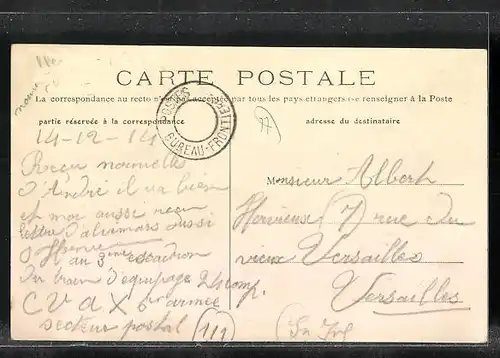 CARTE POSTALE
La correspondance au recto n'est pas acceptée par tous les pays étrangers (se renseigner à la Poste
partie réservée à la correspondance
adresse du destinataire
POSTES
BUREAU-FRONTIERE
14-12-14
Reçu nouvelle
d'André il va bien
et moi aussi reçu
lettre d' aussi
au 3ème escadron
du train d'équipage 24 comp.
C V a X 6e armée
secteur postal (111)
Monsieur Albert
(7) rue du
vieux Versailles
Versailles